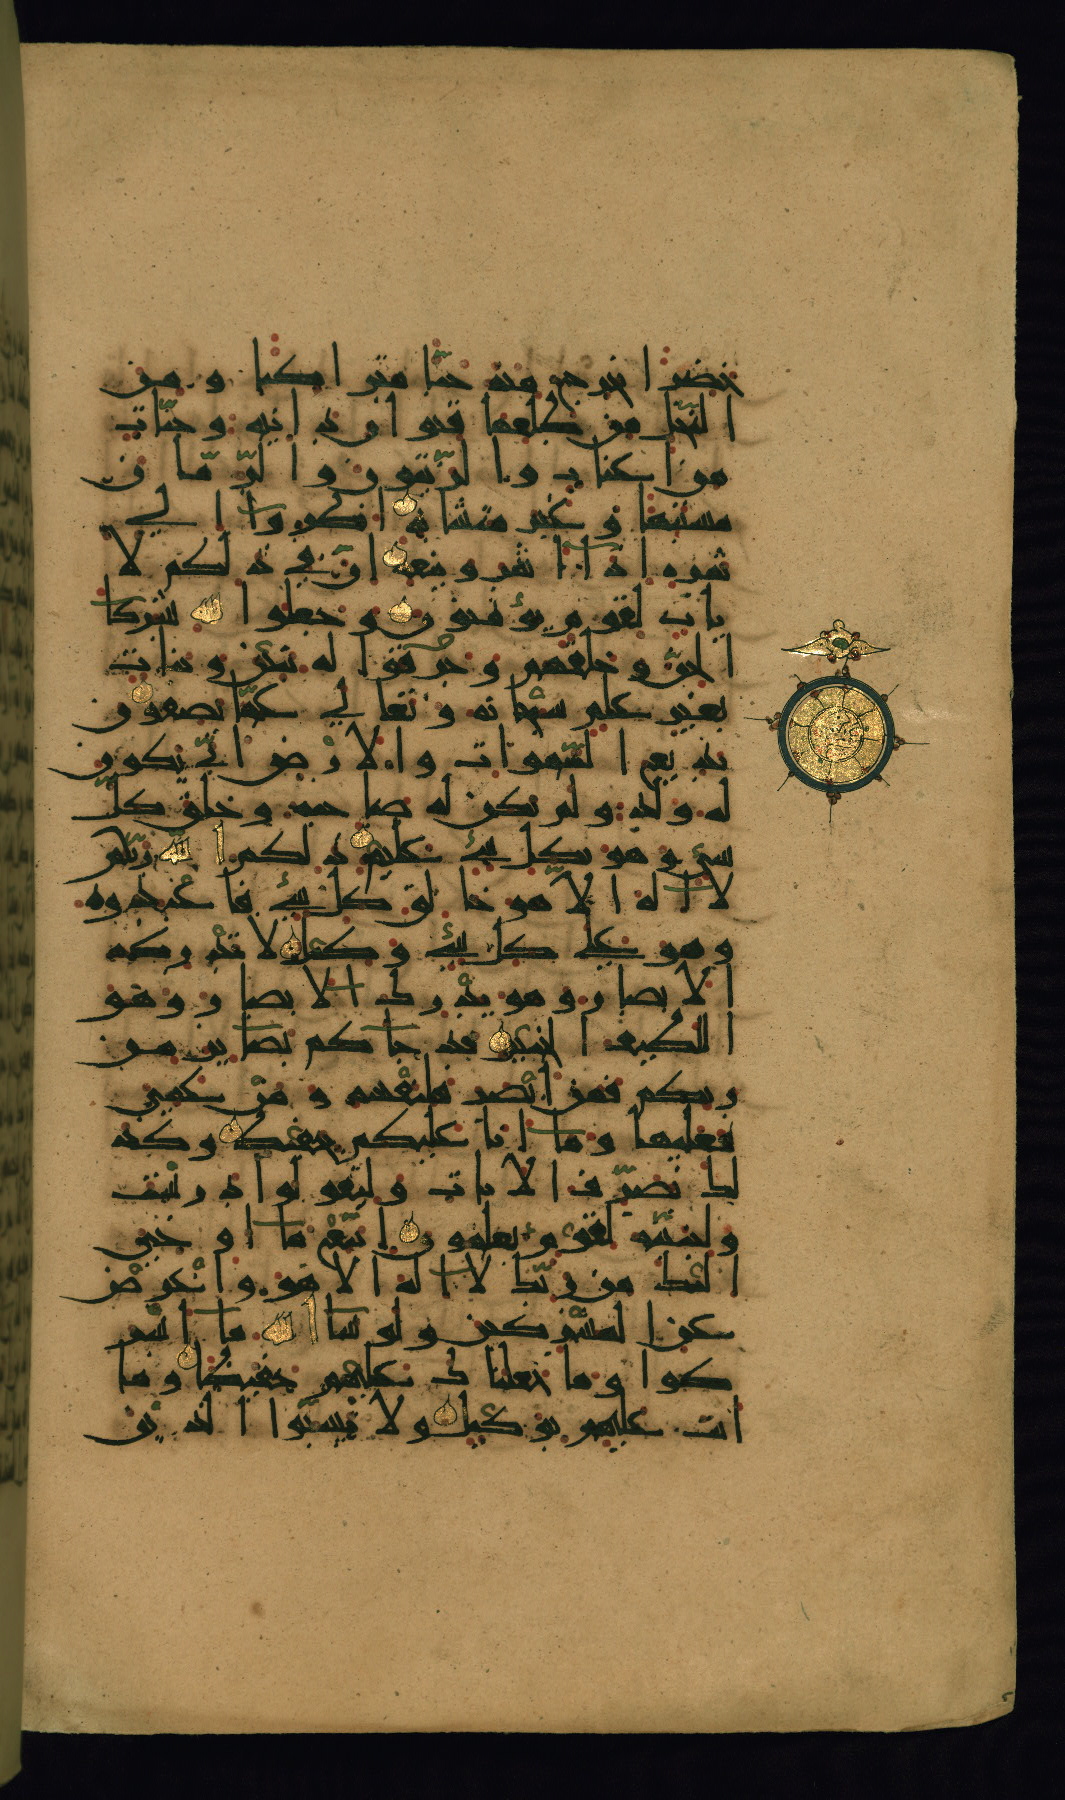 خضرا نخرج منه حبّا متر ا كبا و من
ا لنّخل من طلعها قنو ا ن د ا نيه و جنّات
من ا عناب و ا لز يتو ن و ا لر مّا ن
مشتبها و غير متشا به ا نظر و ا ا لى
ثمر ه ا ذ ا ا ثمر و ينعه ا نّ في ذ لكم لا
يات لقو م يؤ منو ن و جعلو ا لله شركا
ا لجنّ و خلقهم و خر قو ا له بنين و بنات
بغير علم سبحا نه و تعا لى عمّا يصفو ن
بد يع ا لسّموات و ا لا ر ض ا نّى يكو ن
له و لد و لم تكن له صا حبه و خلق كلّ
شى و هو بكل شئ عليم ذ لكم ا لله ربّكم
لا ا له ا لاّ هو خا لق كل شئ فا عبد وه
و هو على كل شئ وكيل لا تد ركه
ا لا بصا ر و هو يد ر ك ا لا بصا ر و هو
ا للطيف ا لخبير قد جا كم بصا ير من
ر بكم فمن ا بصر فلنفسه و من عمى
فعليها و ما ا نا عليكم بحفيظ و كذ
لك نصرّ ف ا لا يات و ليقو لو ا د ر ست
و لنبيّنه لقو م يعلمو ن ا تبّع ما ا و حى
ا ليك من ر بّك لا ا له ا لا هو و ا عر ض
عن ا لمشر كين و لو شا ا لله ما ا شر
كو ا و ما جعلنا ك عليهم حفيظا و ما
ا نت عليهم بو كيل و لا تسبّو ا ا لذ ين